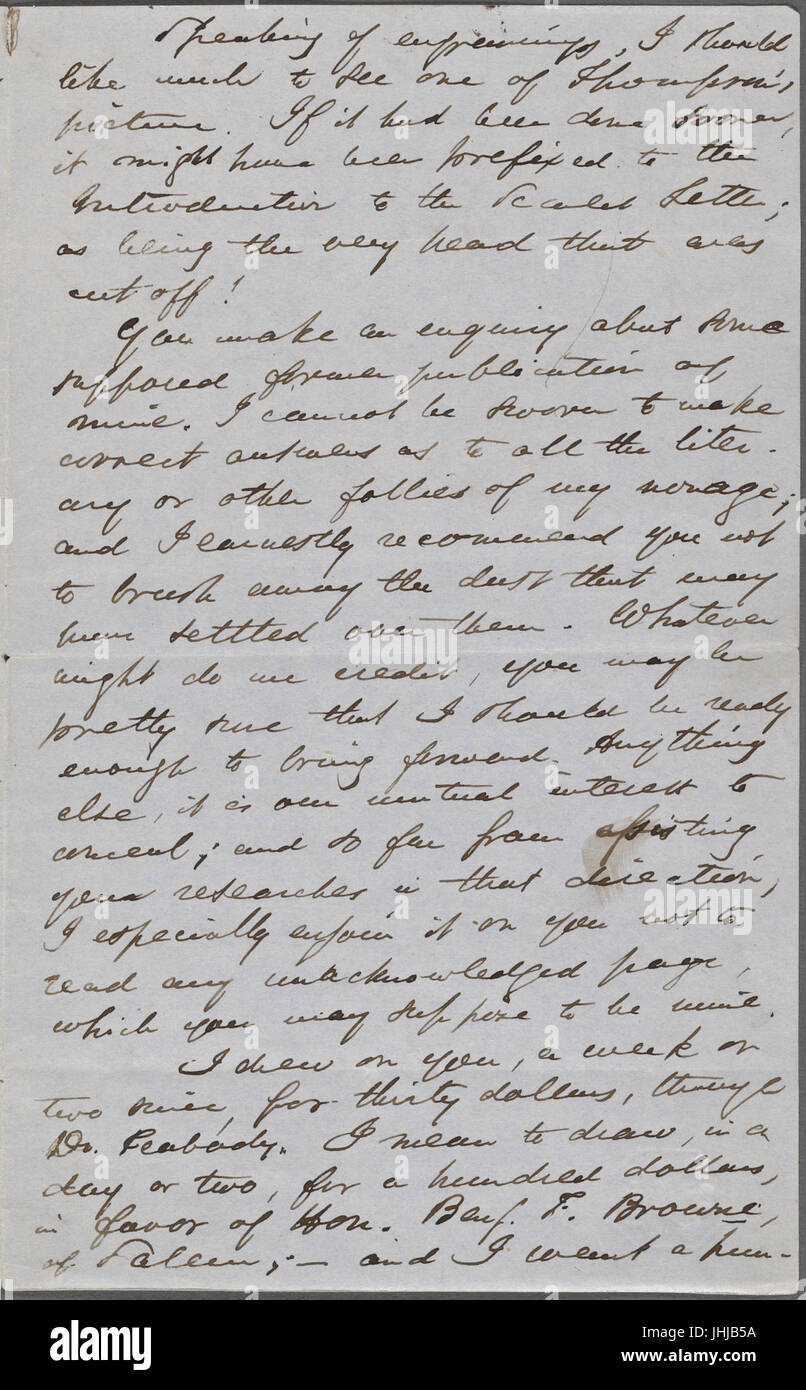 Speaking of engravings, I should
like much to see one of Thompson's
picture. If it had been done sooner,
it might have been prefixed to the
Introduction to the Scarlet Letter;
as being the very head that was
cut off!
You make an enquiry about some
supposed former publication of
mine. I cannot be sworn to make
correct answers as to all the liter-
ary or other follies of my nonage;
and I earnestly recommend you not
to brush away the dust that may
have settled over them. Whatever
might do me credit, you may be
pretty sure that I should be ready
enough to bring forward. Anything
else, it is our mutual interest to
conceal; and so far from assisting
your researches in that direction,
I especially enjoin it on you not to
read any unacknowledged page,
which you may suppose to be mine.
I drew on you, a week or
two since, for thirty dollars, through
Dr. Peabody. I mean to draw, in a
day or two, for a hundred dollars,
in favor of Hon. Benj. F. Browne,
of Salem; — and I want a hun-
alamy
alamy stock photo
JHJB5A
www.alamy.com